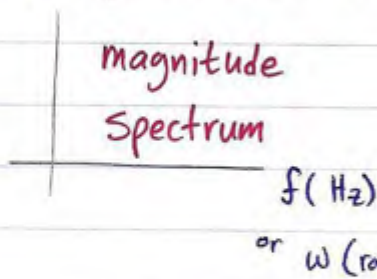 magnitude
Spectrum
f(Hz)
or ω